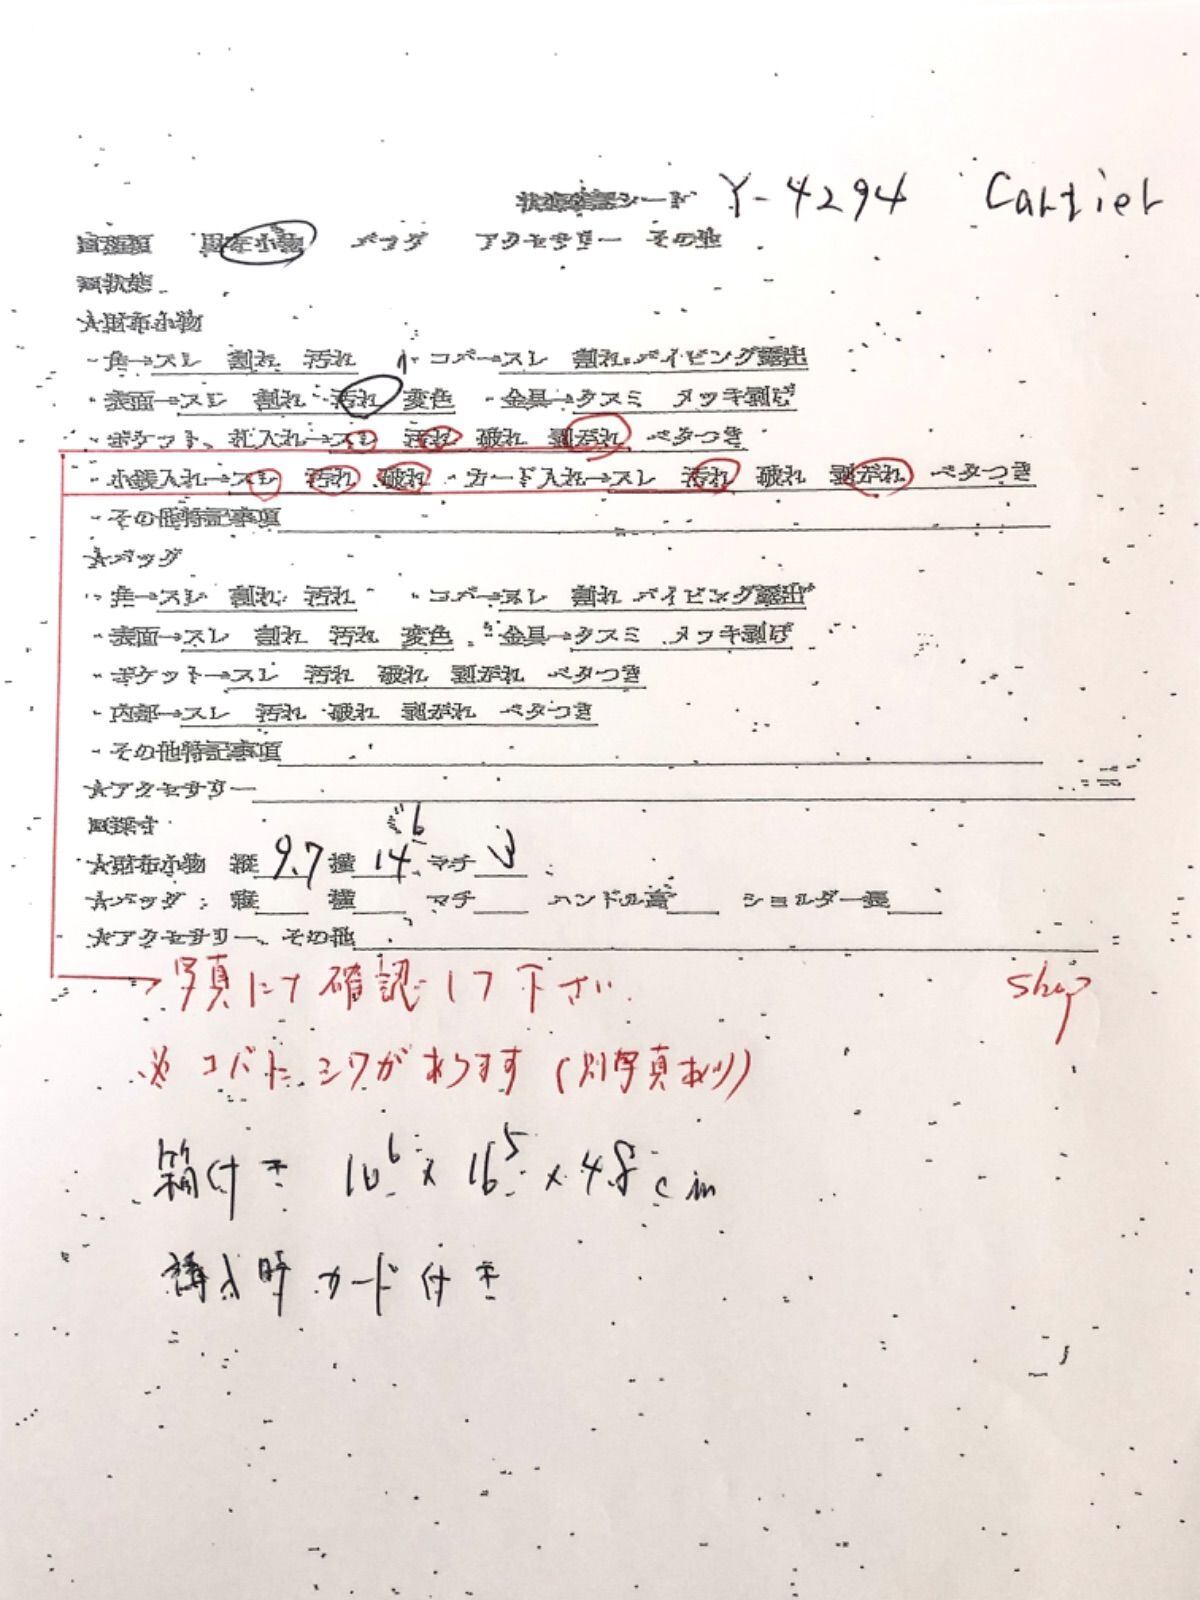 状態確認シート Y-4294 Cartier
■種類 財布小物 バッグ アクセサリー その他
■状態
★財布小物
・角→スレ 割れ 汚れ ・コバ→スレ 割れ パイピング露出
・表面→スレ 割れ 汚れ 変色 ・金具→クスミ メッキ剥げ
・ポケット、札入れ→スレ 汚れ 破れ 剥がれ ベタつき
・小銭入れ→スレ 汚れ 破れ ・カード入れ→スレ 汚れ 破れ 剥がれ ベタつき
・その他特記事項
★バッグ
・角→スレ 割れ 汚れ ・コバ→スレ 割れ パイピング露出
・表面→スレ 割れ 汚れ 変色 ・金具→クスミ メッキ剥げ
・ポケット→スレ 汚れ 破れ 剥がれ ベタつき
・内部→スレ 汚れ 破れ 剥がれ ベタつき
・その他特記事項
★アクセサリー
■採寸
★財布小物 縦 9.7 横 14 マチ 3
★バッグ: 縦 横 マチ ハンドル高 ショルダー長
★アクセサリー、その他
写真にて確認して下さい shop
※ コバに シワがあります (別写真あり)
箱付き 10.6 × 16.5 × 4.8 cm
購入時 カード 付き